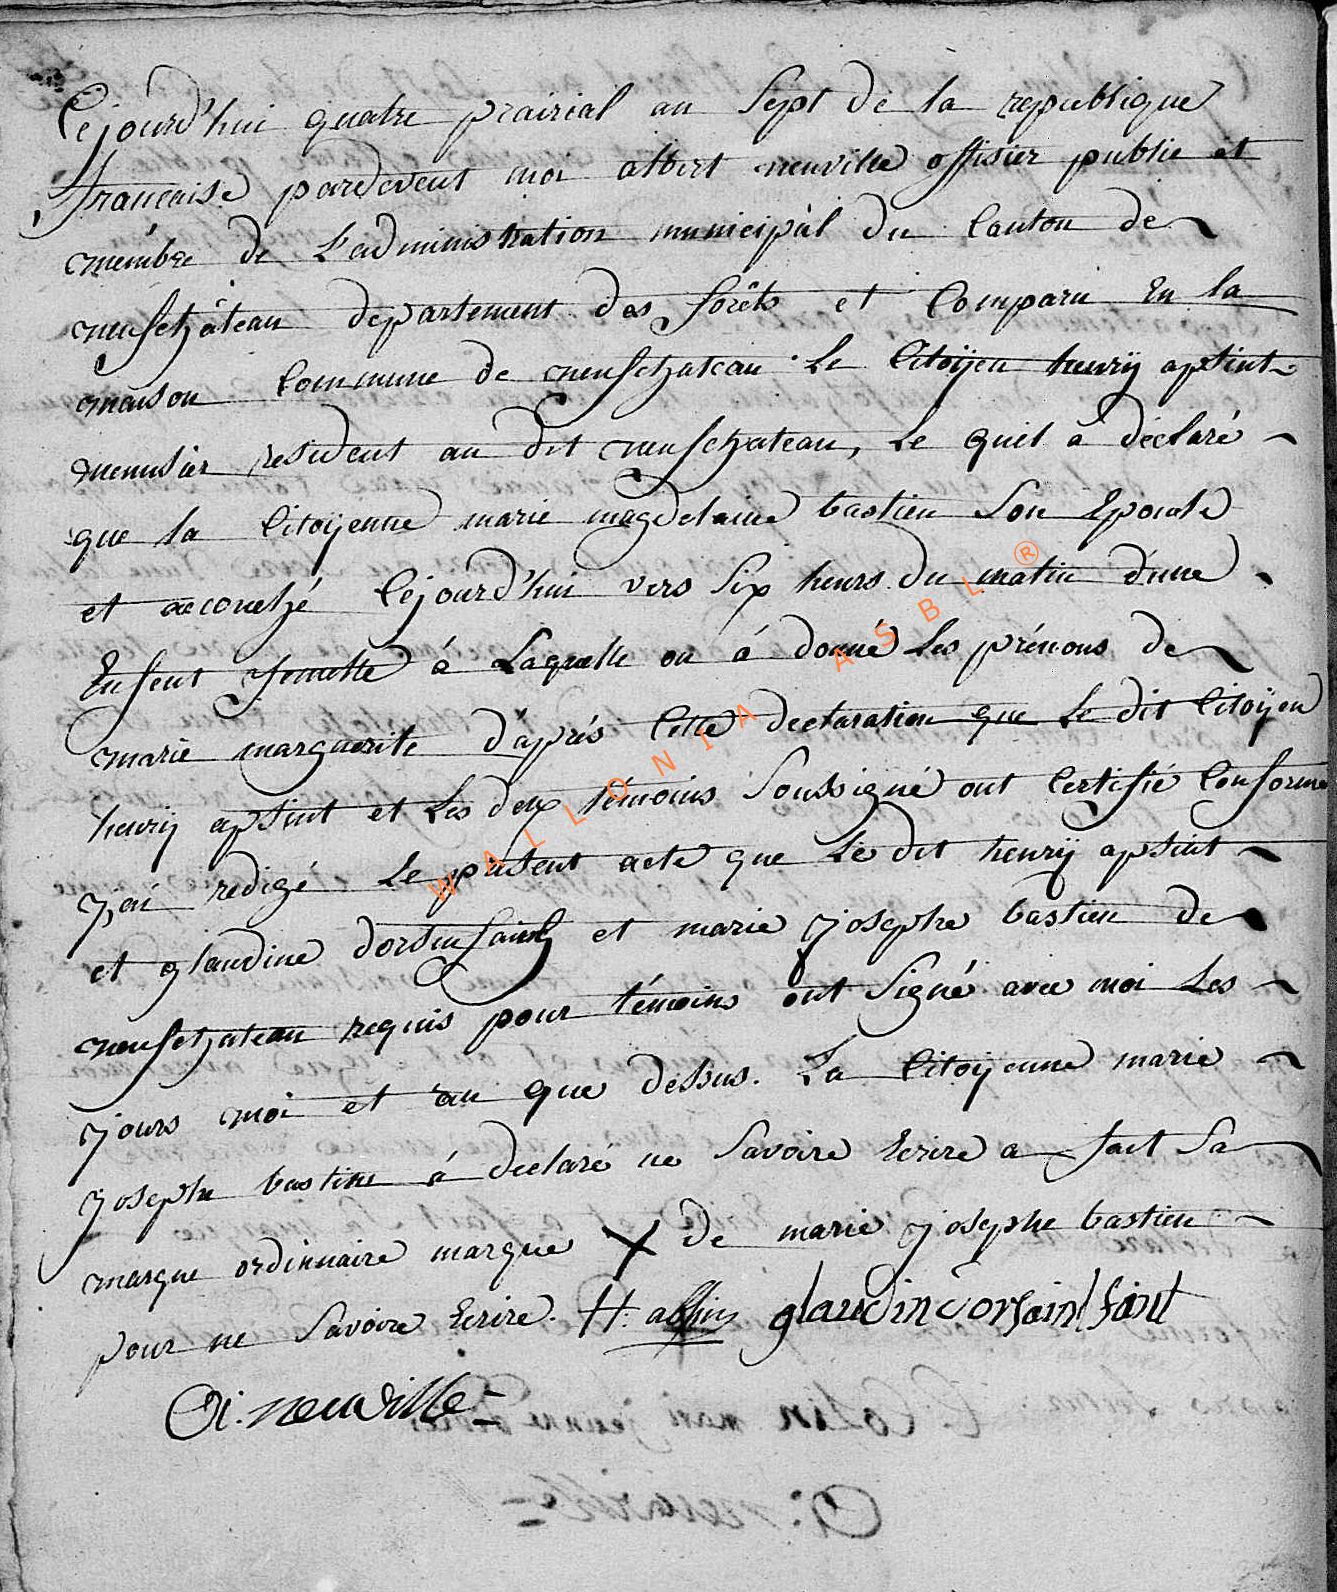 Cejourd'hui quatre prairial an sept de la republique
francaise pardevent moi albert neuville offisier publie et
membre de l'administration municipal du Canton de
neufchâteau departement des forêts et Comparu En la
maison Commune de neufchateau le Citoÿen henrÿ apsint
menusier resident au dit neufchateau, le quel à déclaré
que la Citoÿenne marie magdelaine bastien Son Epouse
et accouché Cejourd'hui vers Six heurs du matin d'une
Enfent femelle á Laquelle on á donné Les prénons de
marie marguerite d'aprés Cette declaration que Le dit Citoÿen
henrÿ apsint et Les deux témoins Soussigné ont Certifié Conforme
j'ai redigé Le présent acte que Le dit henrÿ apsint
et glaudine et marie josephe bastien de
neufchateau requis pour témoins ont Signé avec moi Les
jours moi et an que dessus. La Citoÿenne marie
josephe bastien á declaré ne Savoire Ecrire a fait Sa
marque ordinnaire marque X de marie josephe bastien
pour ne Savoire Ecrire. H: glaudin
A: neuville
WALLONIA ASBL ®